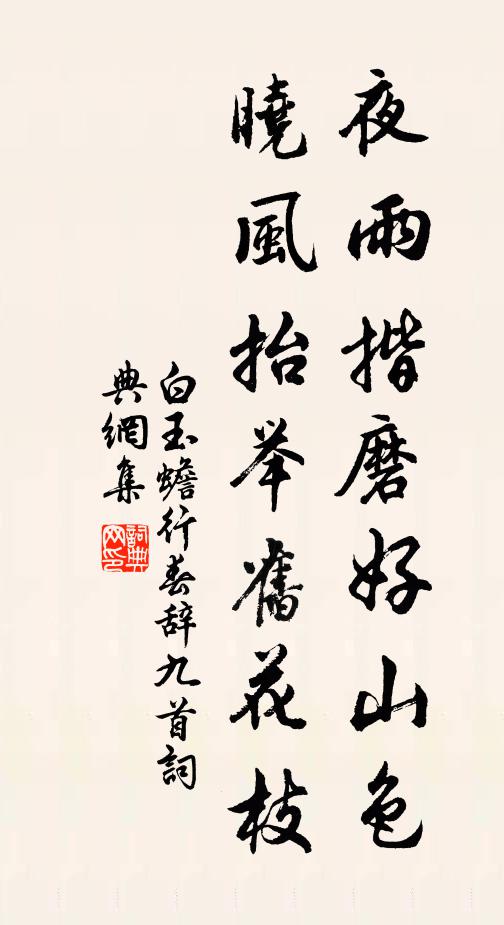 夜雨揩磨好山色
曉風抬举舊花枝
白玉蟾行春辞九首詞
典網集
詞典网印